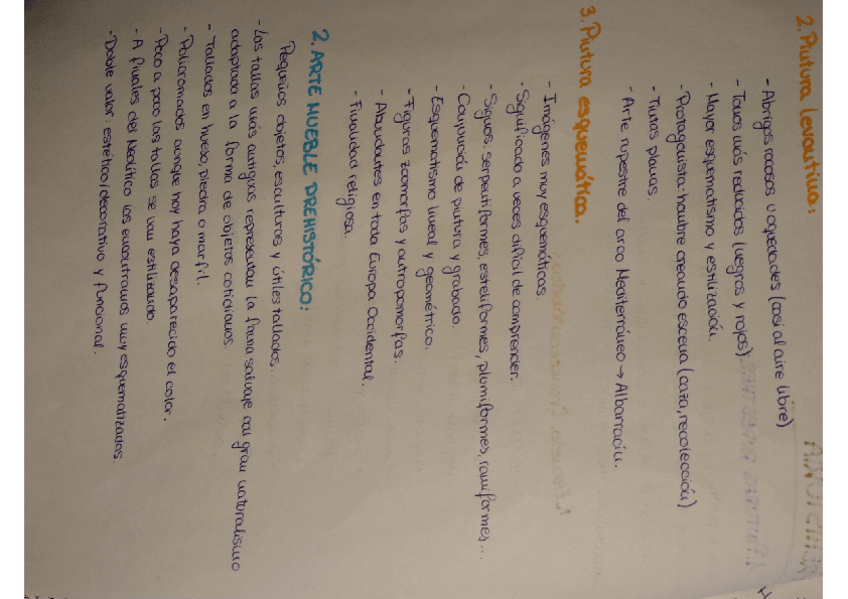 2. Pintura levantina:
- Abrigos rocosos u oquedades (casi al aire libre)
- Tonos más reducidos (negros y rojos)
- Mayor esquematismo y estilización.
- Protagonista: hombre creando escena (caza, recolección)
- Tintas planas.
- Arte rupestre del arco Mediterráneo → Albarracín.
3. Pintura esquemática.
- Imágenes muy esquemáticas
- Significado a veces difícil de comprender.
- Signos: serpentiformes, esteliformes, plumiformes, ramiformes...
- Conjunción de pintura y grabado.
- Esquematismo lineal y geométrico.
- Figuras zoomorfas y antropomorfas.
- Abundantes en toda Europa Occidental.
- Finalidad religiosa.
2. ARTE MUEBLE PREHISTÓRICO:
Pequeños objetos, esculturas y útiles tallados.
- Las tallas más antiguas representan la fauna salvaje con gran naturalismo
adaptada a la forma de objetos cotidianos.
- Tallados en hueso, piedra o marfil.
- Policromados aunque hoy haya desaparecido el color.
- Poco a poco las tallas se van estilizando.
- A finales del Neolítico las encontramos muy esquematizadas.
- Doble valor: estético/decorativo y funcional.